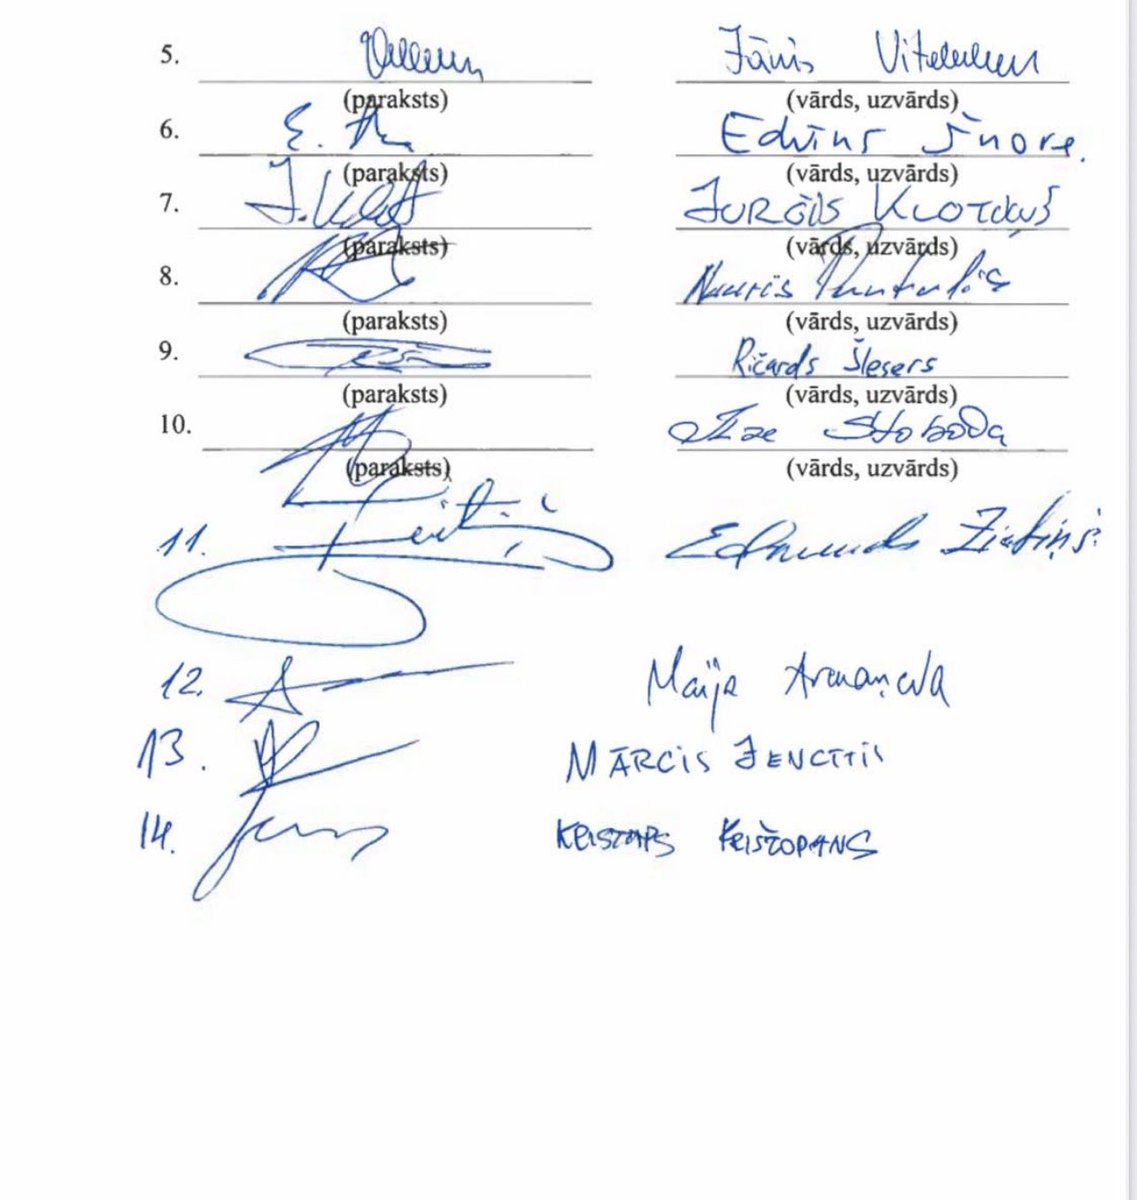 5. Jānis Vitenbergs
(paraksts) (vārds, uzvārds)
6. E. Edvīns Šnore.
(paraksts) (vārds, uzvārds)
7. J. Klot Jurģis Klotiņš
(paraksts) (vārds, uzvārds)
8. Nauris Puntulis
(paraksts) (vārds, uzvārds)
9. Ričards Šlesers
(paraksts) (vārds, uzvārds)
10. Ilze Stobova
(paraksts) (vārds, uzvārds)
11. Edmunds
12. Maija Armaņeva
13. MĀRCIS JENCĪTIS
14. KRISTAPS KRIŠTOPANS